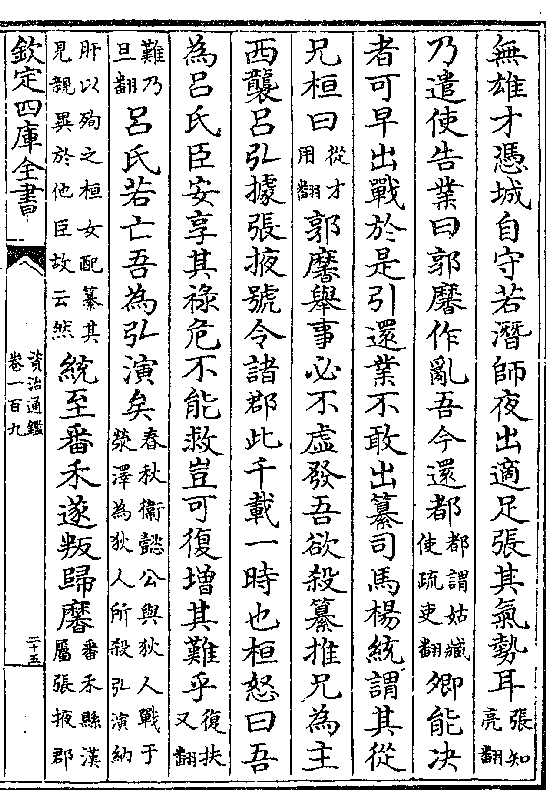 無雄才憑城自守若潛師夜出適足張其氣勢耳張知亮翻
乃遣使告業曰郭黁作亂吾今還都都謂姑臧使疏吏翻卿能决
者可早出戰於是引還業不敢出纂司馬楊統謂其從
兄桓曰從才用翻郭黁舉事必不虛發吾欲殺纂推兄為主
西襲呂弘據張掖號令諸郡此千載一時也桓怒曰吾
為呂氏臣安享其祿危不能救豈可復增其難乎復扶又翻
難乃旦翻呂氏若亡吾為弘演矣春秋衞懿公與狄人戰于熒澤為狄人所殺弘演納
肝以殉之桓女配纂其見親異於他臣故云然統至番禾遂叛歸黁番禾縣漢屬張掖郡
欽定四庫全書
資治通鑑
卷一百九
二十五